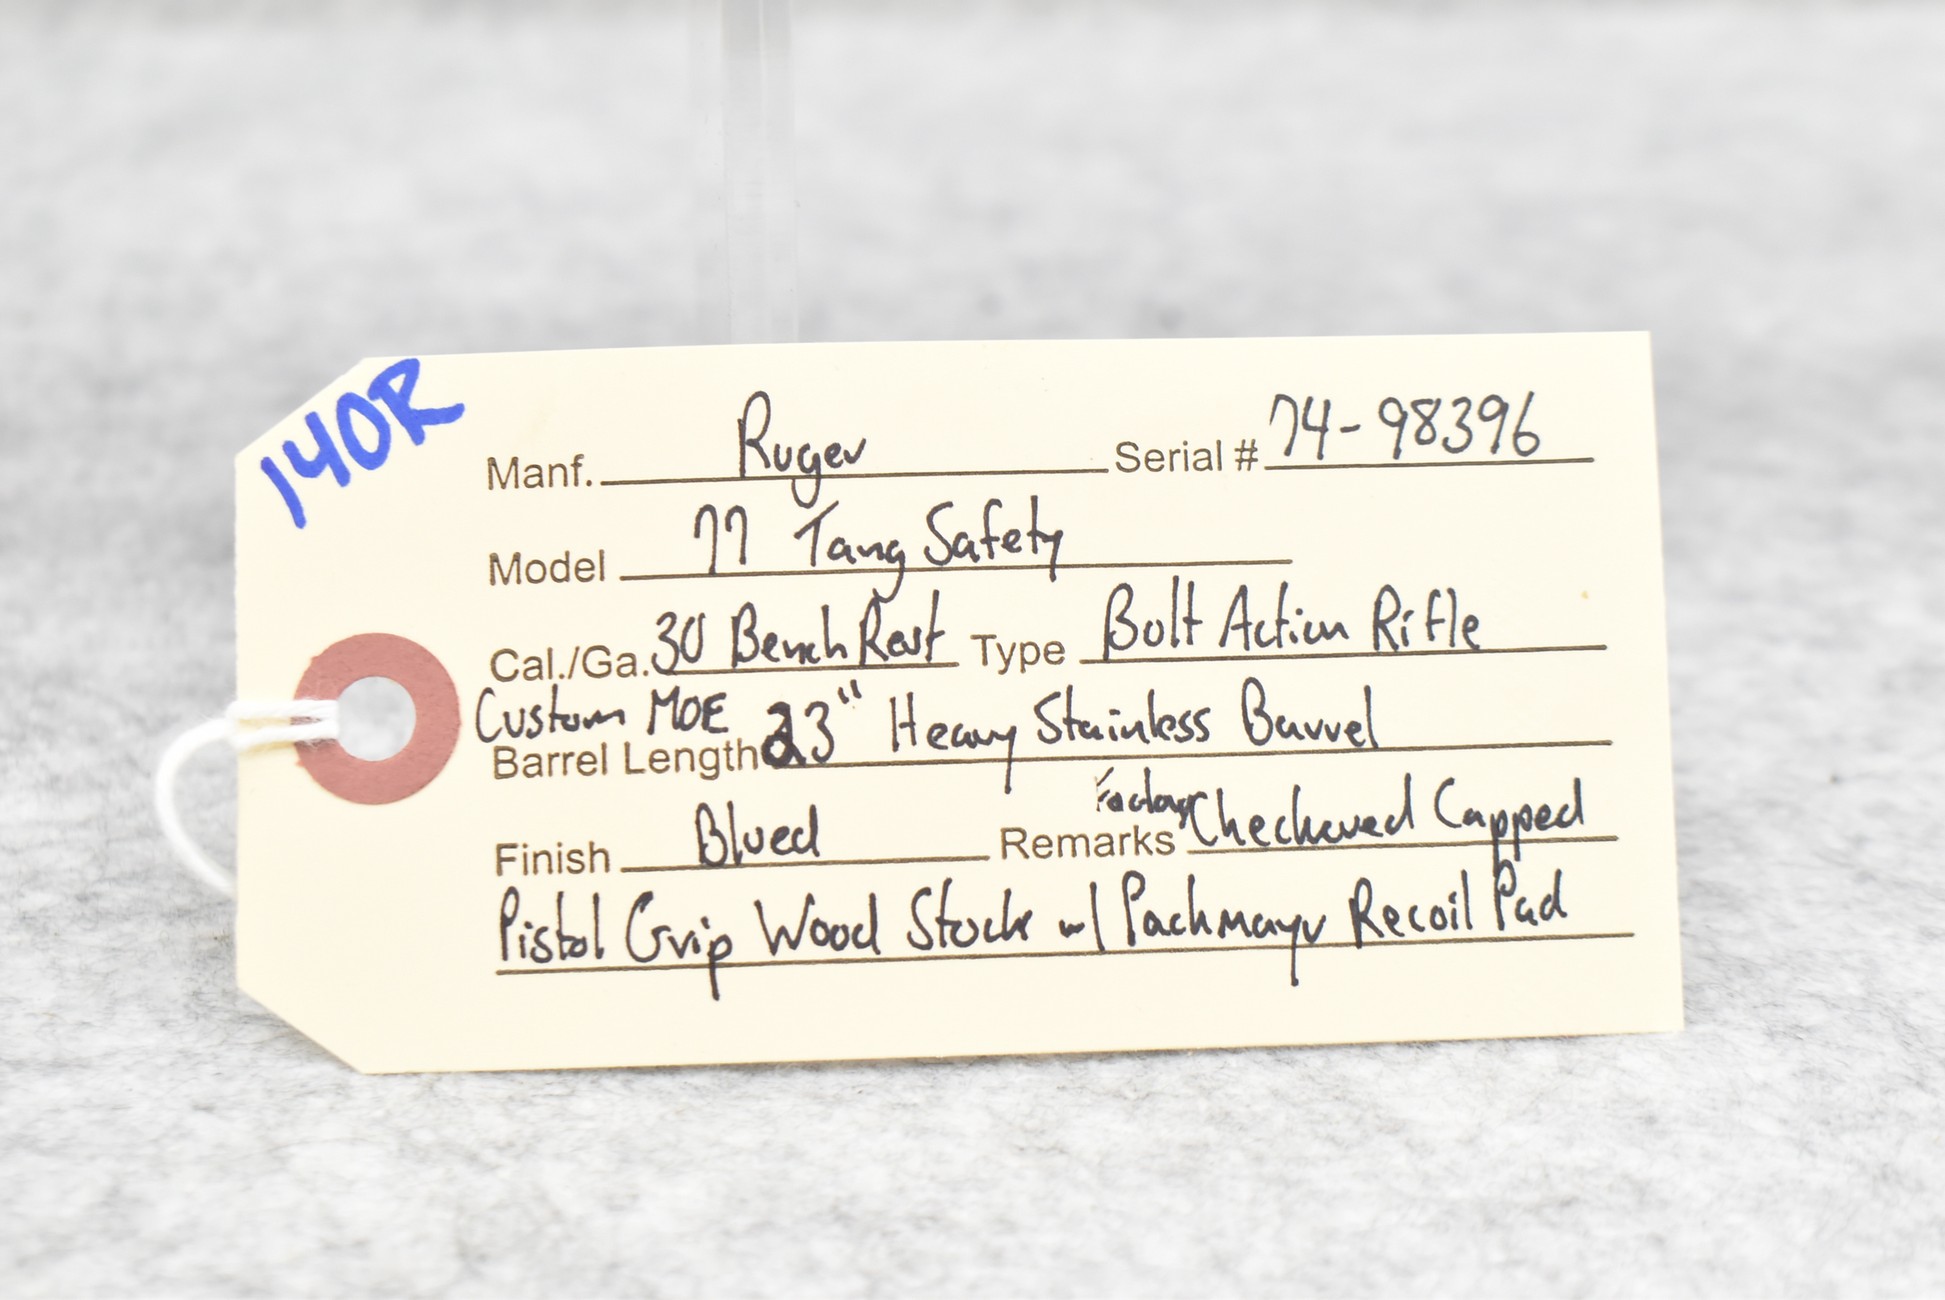 140R
Manf. Ruger Serial # 74-98396
Model 77 Tang Safety
Cal./Ga. 30 Bench Rest Type Bolt Action Rifle
Custom MOE
Barrel Length 23" Heavy Stainless Barrel
Factory
Finish Blued Remarks Checkered Capped
Pistol Grip Wood Stock w/ Pachmayr Recoil Pad